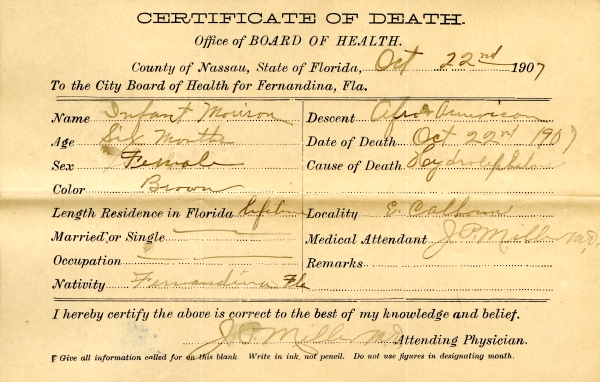 CERTIFICATE OF DEATH.
Office of BOARD OF HEALTH.
County of Nassau, State of Florida, Oct 22nd 1907
To the City Board of Health for Fernandina, Fla.
Name Infant
Descent Afro American
Age Six Months
Date of Death Oct 22nd 1907
Sex Female
Cause of Death
Color Brown
Length Residence in Florida lifetime
Locality E. Calhoun
Married or Single
Medical Attendant J P Miller M.D.
Occupation
Remarks
Nativity Fernandina Fla
I hereby certify the above is correct to the best of my knowledge and belief.
J P Miller M.D. Attending Physician.
Give all information called for on this blank. Write in ink, not pencil. Do not use figures in designating month.